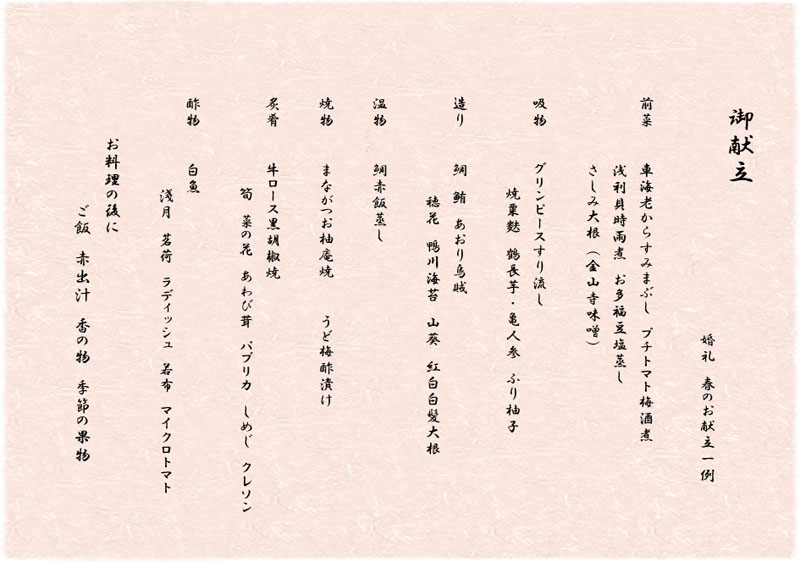 御献立
婚礼 春のお献立一例
前菜 車海老からすみまぶし プチトマト梅酒煮
浅利貝時雨煮 お多福豆塩蒸し
さしみ大根（金山寺味噌）
吸物 グリンピースすり流し
焼粟麩 鶴長芋・亀人参 ふり柚子
造り 鯛 鮪 あおり烏賊
穂花 鴨川海苔 山葵 紅白白髪大根
温物 鯛赤飯蒸し
焼物 まながつお柚庵焼 うど梅酢漬け
炙肴 牛ロース黒胡椒焼
筍 菜の花 あわび茸 パプリカ しめじ クレソン
酢物 白魚
浅月 茗荷 ラディッシュ 若布 マイクロトマト
お料理の後に
ご飯 赤出汁 香の物 季節の果物